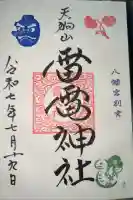 八幡宮別当
天狗山
雷電神社
令和七年七月十六日